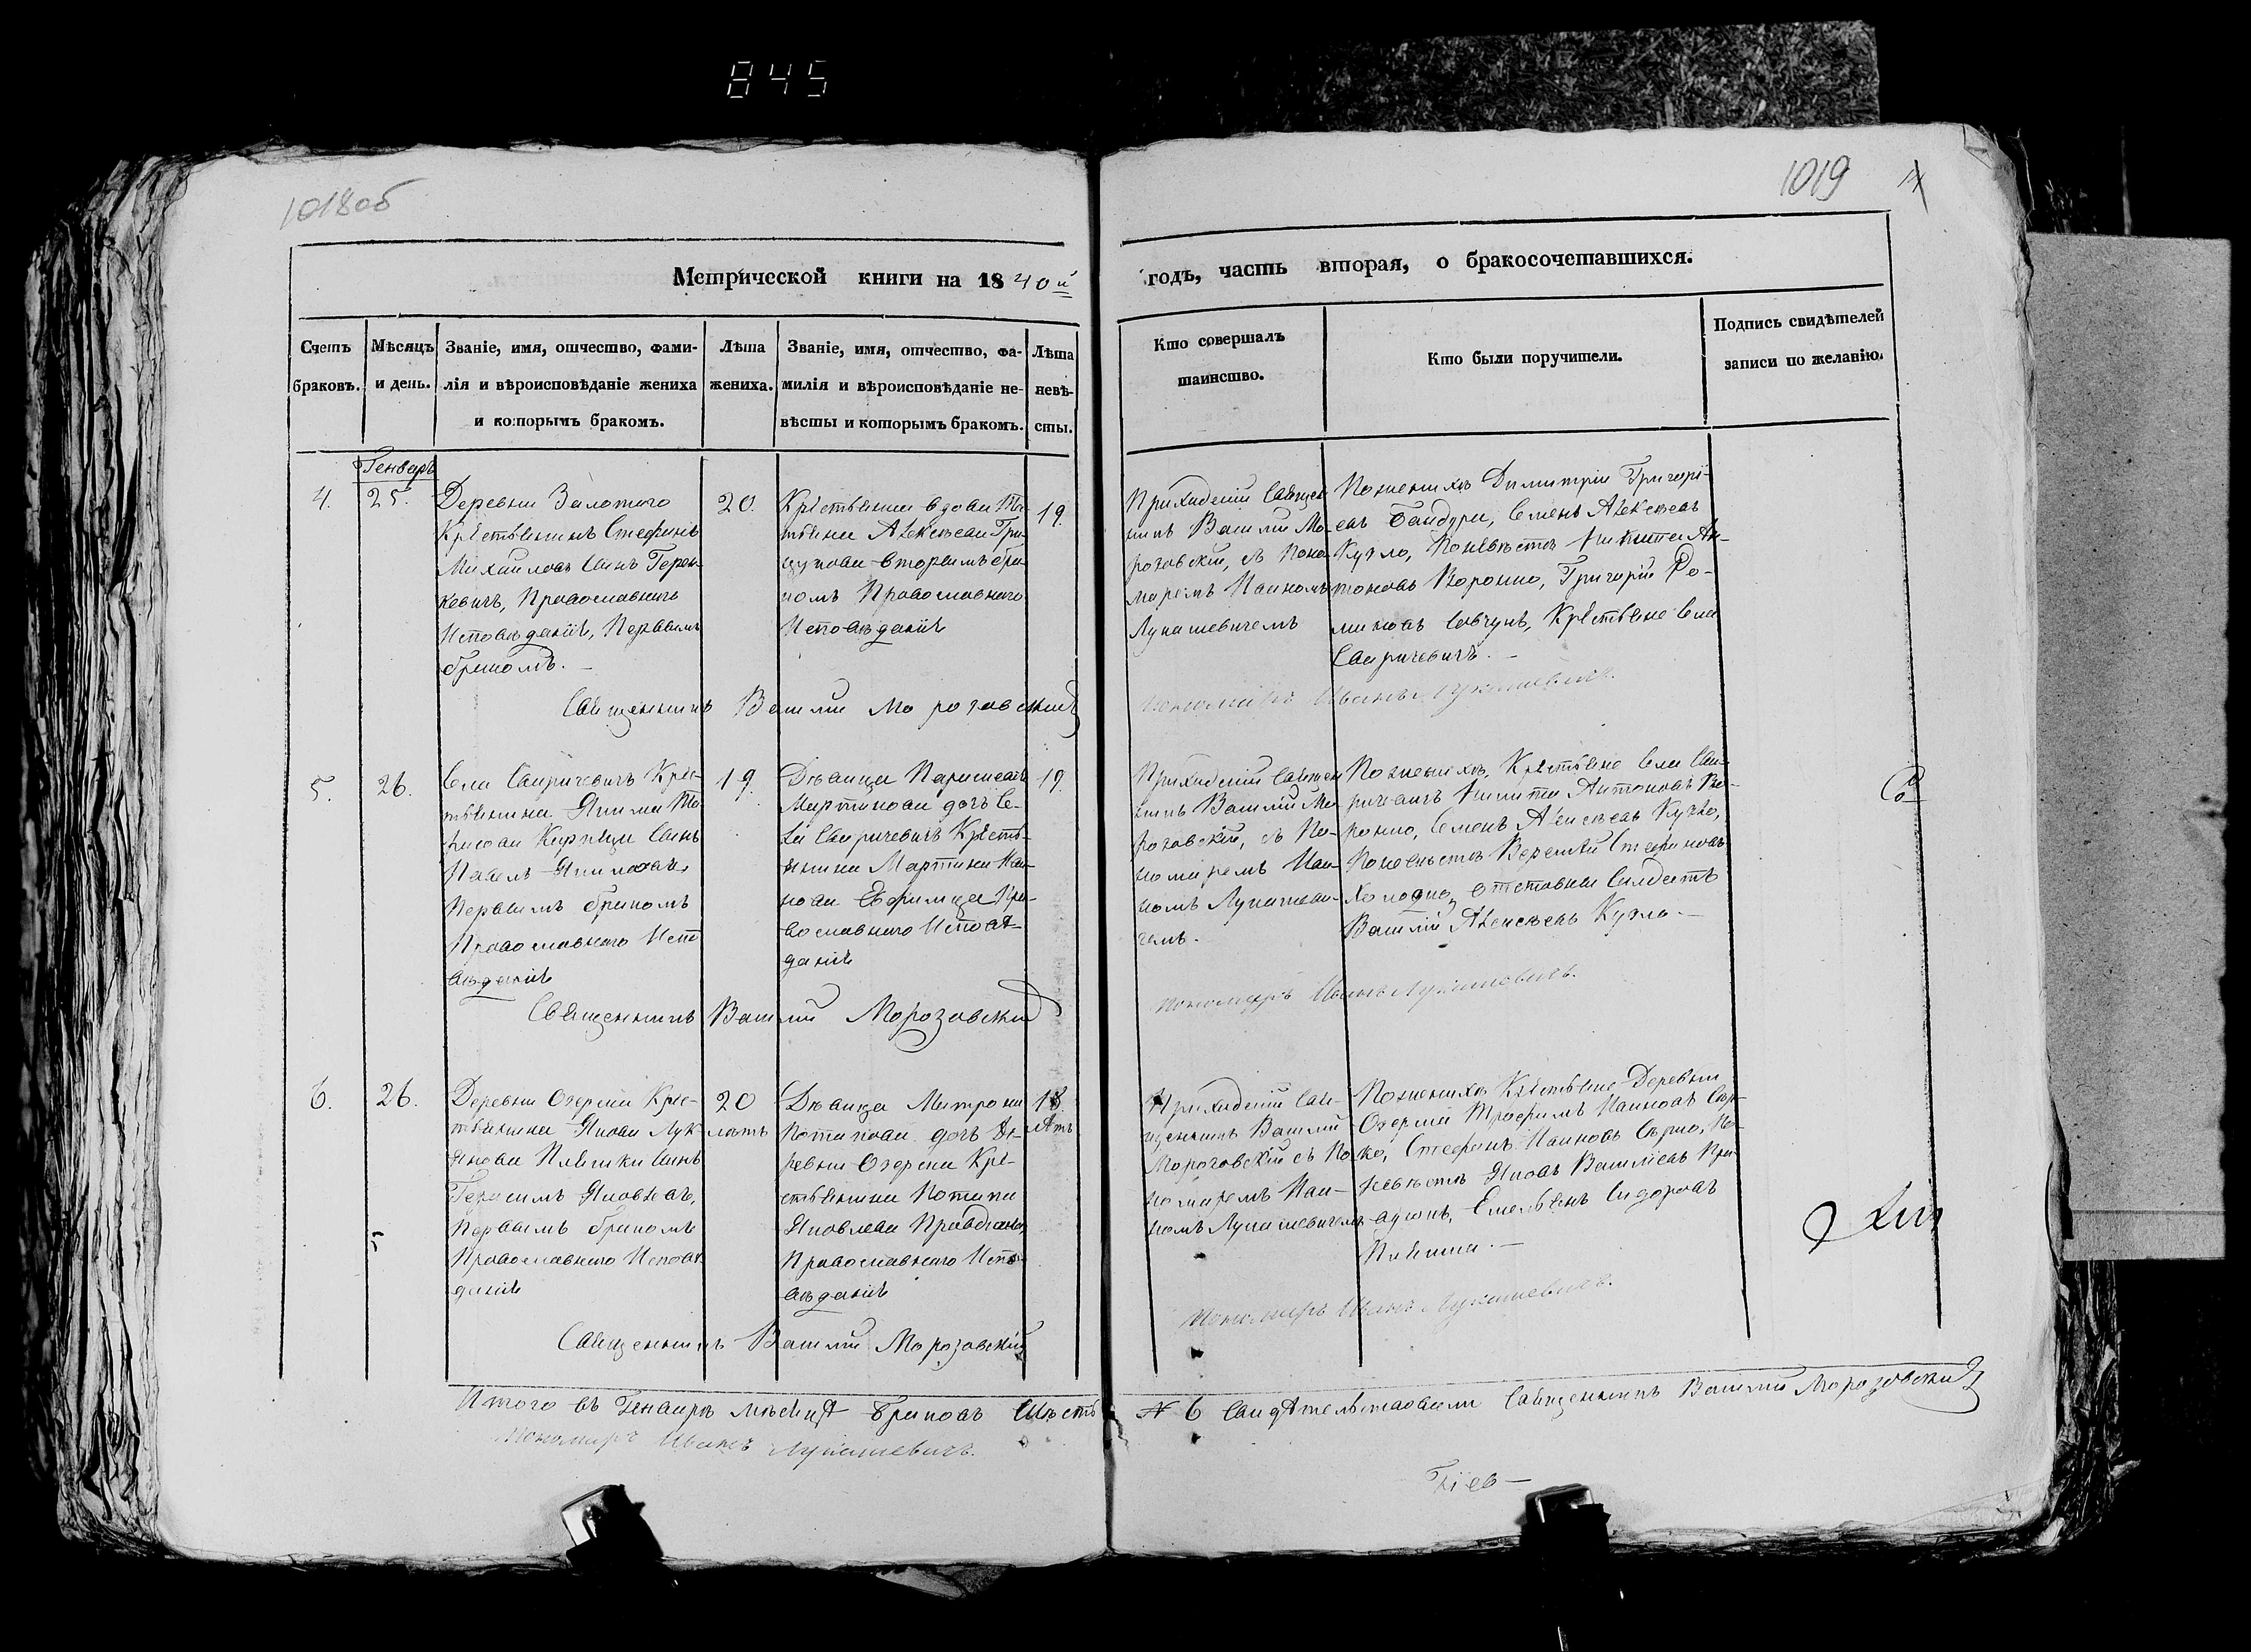 845
1018об
1019
Метрической книги на 1840й
годъ, часть вторая, о бракосочетавшихся.
Счетъ браковъ.
Мѣсяцъ и день.
Званіе, имя, отчество, фами-
лія и вѣроисповѣданіе жениха
и которымъ бракомъ.
Лѣта
жениха.
Званіе, имя, отчество, фа-
милія и вѣроисповѣданіе не-
вѣсты и которымъ бракомъ.
Лѣта
невѣ-
сты.
Кто совершалъ
таинство.
Кто были поручители.
Подпись свидѣтелей
записи по желанію.
Генваръ
4.
25.
Деревни Залотого
Крѣстьянинъ Стефанъ
Михайловъ Сынъ Герен-
кевичъ, Православнаго
Исповѣданія, Первымъ
бракомъ.
20.
Крѣстьянка вдова Та-
тьяна Алексѣева Гри-
цукова вторымъ бра-
комъ Православнаго
Исповѣданія
19.
Приходскій Священ
никъ Василій Мо-
розовскій, съ Поно-
маремъ Иваномъ
Лукашевичемъ
По женихѣ Димитрій Григорі-
евъ Бандура, Семенъ Алексѣевъ
Кузло, По невѣстѣ Никита Ан-
тоновъ Воронко, Григорій Ро-
мановъ Савчукъ, Крѣстьяне Села
Свиричевичъ.
Священникъ Василій Морозовскій
Пономаръ Иванъ Лукашевичъ.
5.
26.
Села Свиричевичъ Крѣс-
тьянина Якима
Сынъ
Павелъ Якимовъ,
Первымъ бракомъ
Православнаго Испо
вѣданія
19.
Дѣвица Параскева
Мартинова дочъ Се-
ла Свиричевичъ Крѣсть-
янина Мартина Ива-
нова Ефимца Пра-
вославнаго Исповѣ-
данія
19.
Приходскій Священ
никъ Василій Мо-
розовскій, съ По-
номаремъ Ива-
номъ Лукашеви-
чемъ.
По женихѣ, Крѣстьяне Села Сви-
ричевичъ Никита Антоновъ Во-
ронко, Семенъ Алексѣевъ Кузло,
По невѣстѣ Стефановъ
Холодко, отставный Салдатъ
Василій Алексѣевъ Кузло.
Священникъ Василій Морозовскій
Пономаръ Иванъ Лукашевичъ.
6.
26.
Деревни Озерска Крѣс-
тьянина Якова Лук-
янова Плешки Сынъ
Герасимъ Яковлевъ,
Первымъ бракомъ
Православнаго Исповѣ-
данія
20
лѣтъ
Дѣвица Матрона
Потапова дочъ Де-
ревни Озерска Крѣ-
стьянина Потапа
Яковлева
Православнаго Испо-
вѣданія
18.
лѣтъ
Приходскій Свя-
щенникъ Василій
Морозовскій съ По-
номаремъ Ива-
номъ Лукашевичемъ
По женихѣ Крѣстьяне Деревни
Озерска Трофимъ Ивановъ
Стефанъ Ивановъ По-
невѣстѣ Яковъ Василіевъ
Емельянъ Сидоровъ
Плешка.
Священникъ Василій Морозовскій
Пономаръ Иванъ Лукашевичъ.
Итого въ Генварѣ мѣсяцѣ Браковъ Шесть
№ 6 Свидѣтельствовали Священникъ Василій Морозовскій
Пономаръ Иванъ Лукашевичъ.